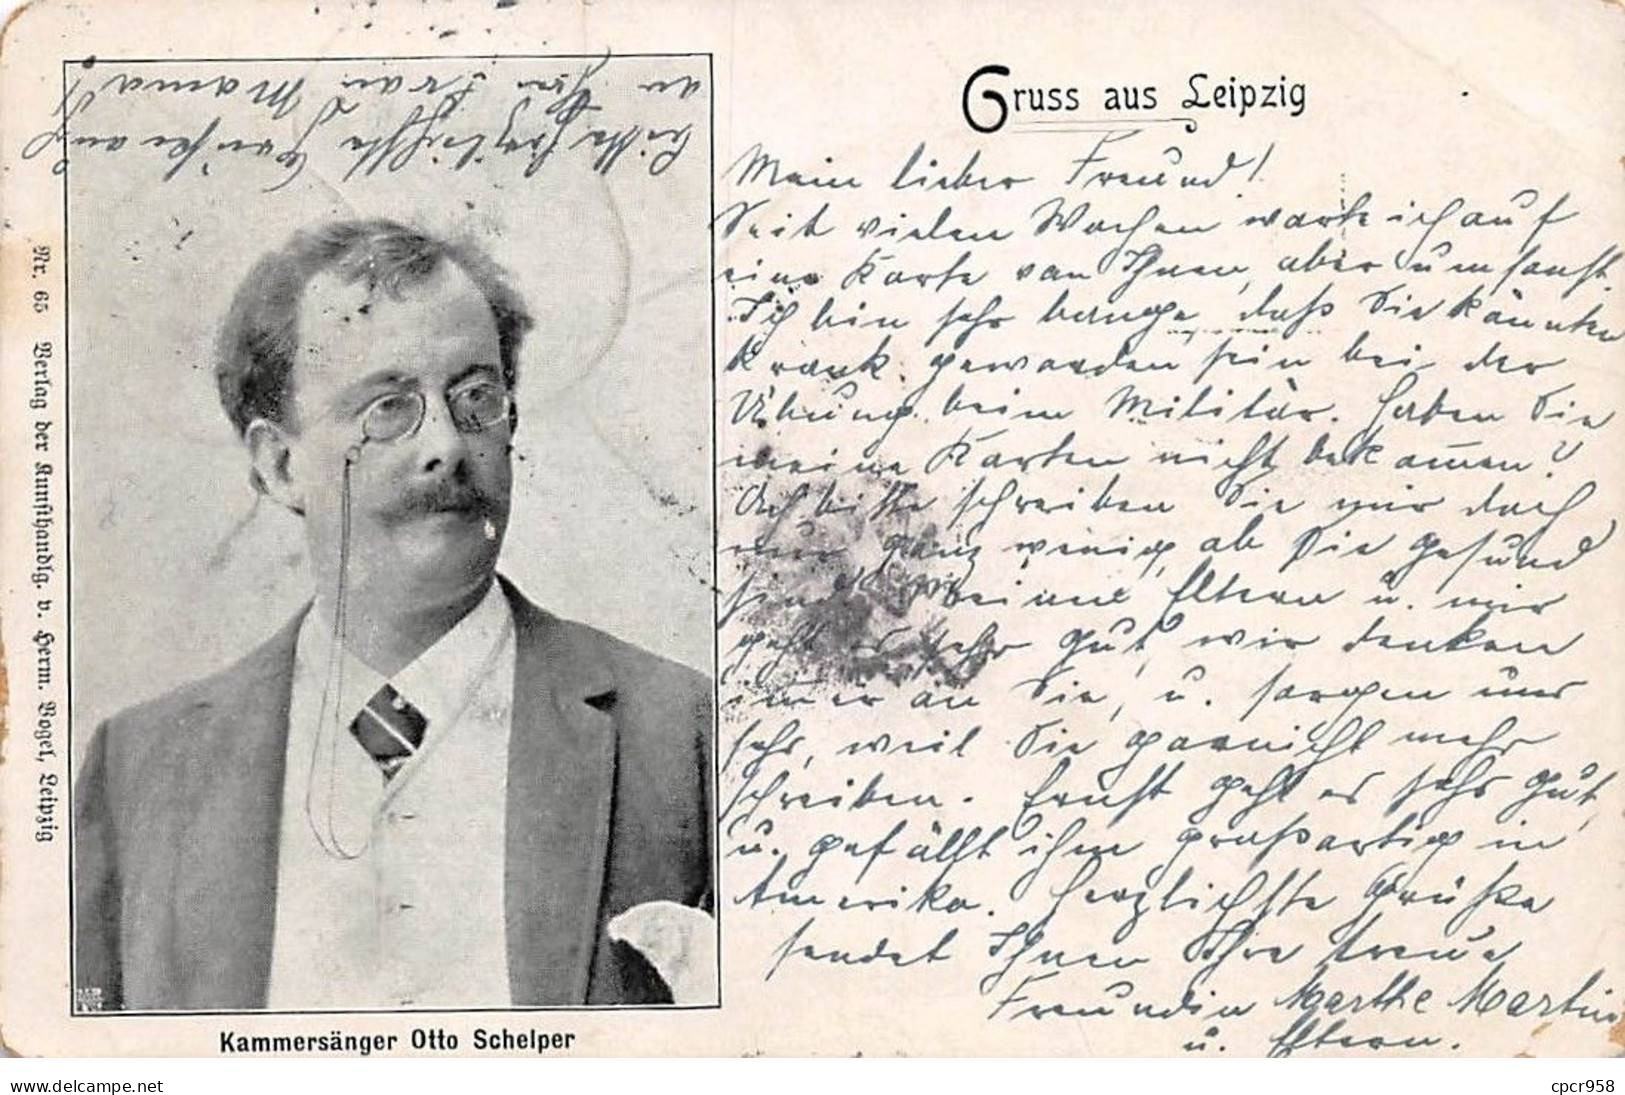 Gruss aus Leipzig
Mein lieber Freund!
Seit vielen Wochen warte ich auf
eine Karte von Ihnen, aber umsonst.
Ich bin sehr bange, daß Sie könnten
krank geworden sein bei der
Übung beim Militär. Haben Sie
meine Karten nicht bekommen?
Ach bitte schreiben Sie mir doch
nur ganz wenig, ob Sie gesund
sind. Meinen Eltern u. mir
geht es sehr gut, wir denken
immer an Sie, u. sorgen uns
sehr, weil Sie garnicht mehr
schreiben. Ernst geht es sehr gut,
u. gefällt ihm großartig in
Amerika. Herzlichste Grüße
sendet Ihnen Ihre treue
Freundin Marthe Martin
u. Eltern.
Bitte herzlichste Grüße auch
an Ihre Frau Mama!
Nr. 65 Verlag der Kunsthandlg. v. Herm. Vogel, Leipzig
Kammersänger Otto Schelper
delcampe.net
cpcr958